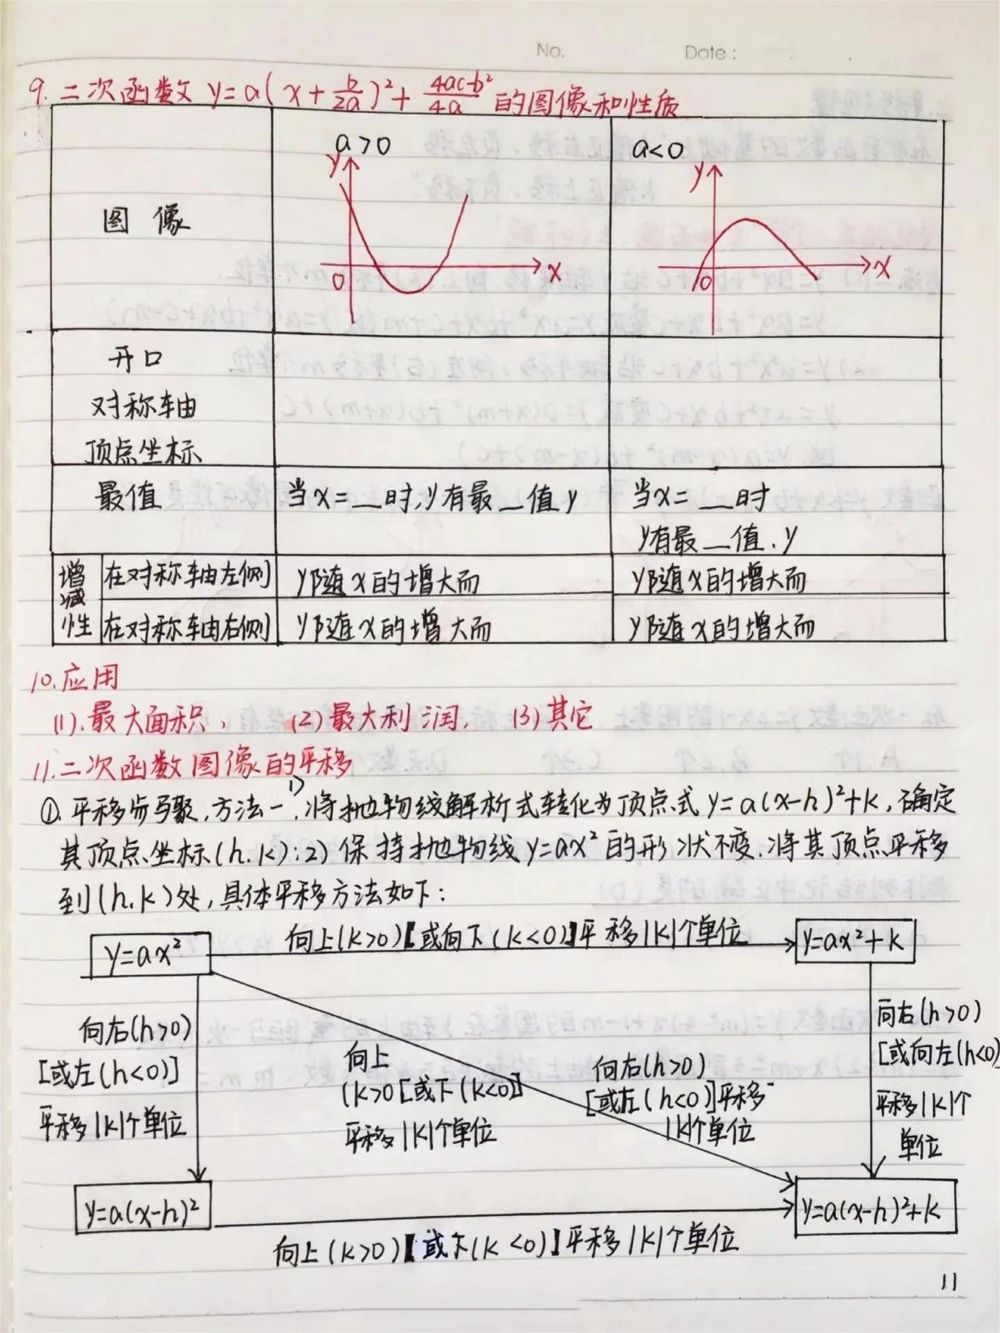 No. Date:
9. 二次函数 y=a(x+b/2a)²+(4ac-b²)/4a 的图像和性质
图像
a>0
y
0
x
a<0
y
0
x
开口
对称轴
顶点坐标
最值
当x=__时,y有最__值y
当x=__时
y有最__值.y
增减性
在对称轴左侧
y随x的增大而
y随x的增大而
在对称轴右侧
y随x的增大而
y随x的增大而
10.应用
(1).最大面积, (2)最大利润, (3)其它
11.二次函数图像的平移
①.平移步骤,方法一1)将抛物线解析式转化为顶点式y=a(x-h)²+k,确定
其顶点坐标(h.k);2)保持抛物线y=ax²的形状不变.将其顶点平移
到(h.k)处,具体平移方法如下:
y=ax²
向上(k>0)【或向下(k<0)】平移|k|个单位
y=ax²+k
向右(h>0)
[或左(h<0)]
平移|k|个单位
向上
(k>0[或下(k<0)]
平移|k|个单位
向右(h>0)
[或左(h<0)]平移
|k|个单位
向右(h>0)
[或向左(h<0)
平移|k|个
单位
y=a(x-h)²
y=a(x-h)²+k
向上(k>0)【或下(k<0)】平移|k|个单位
11